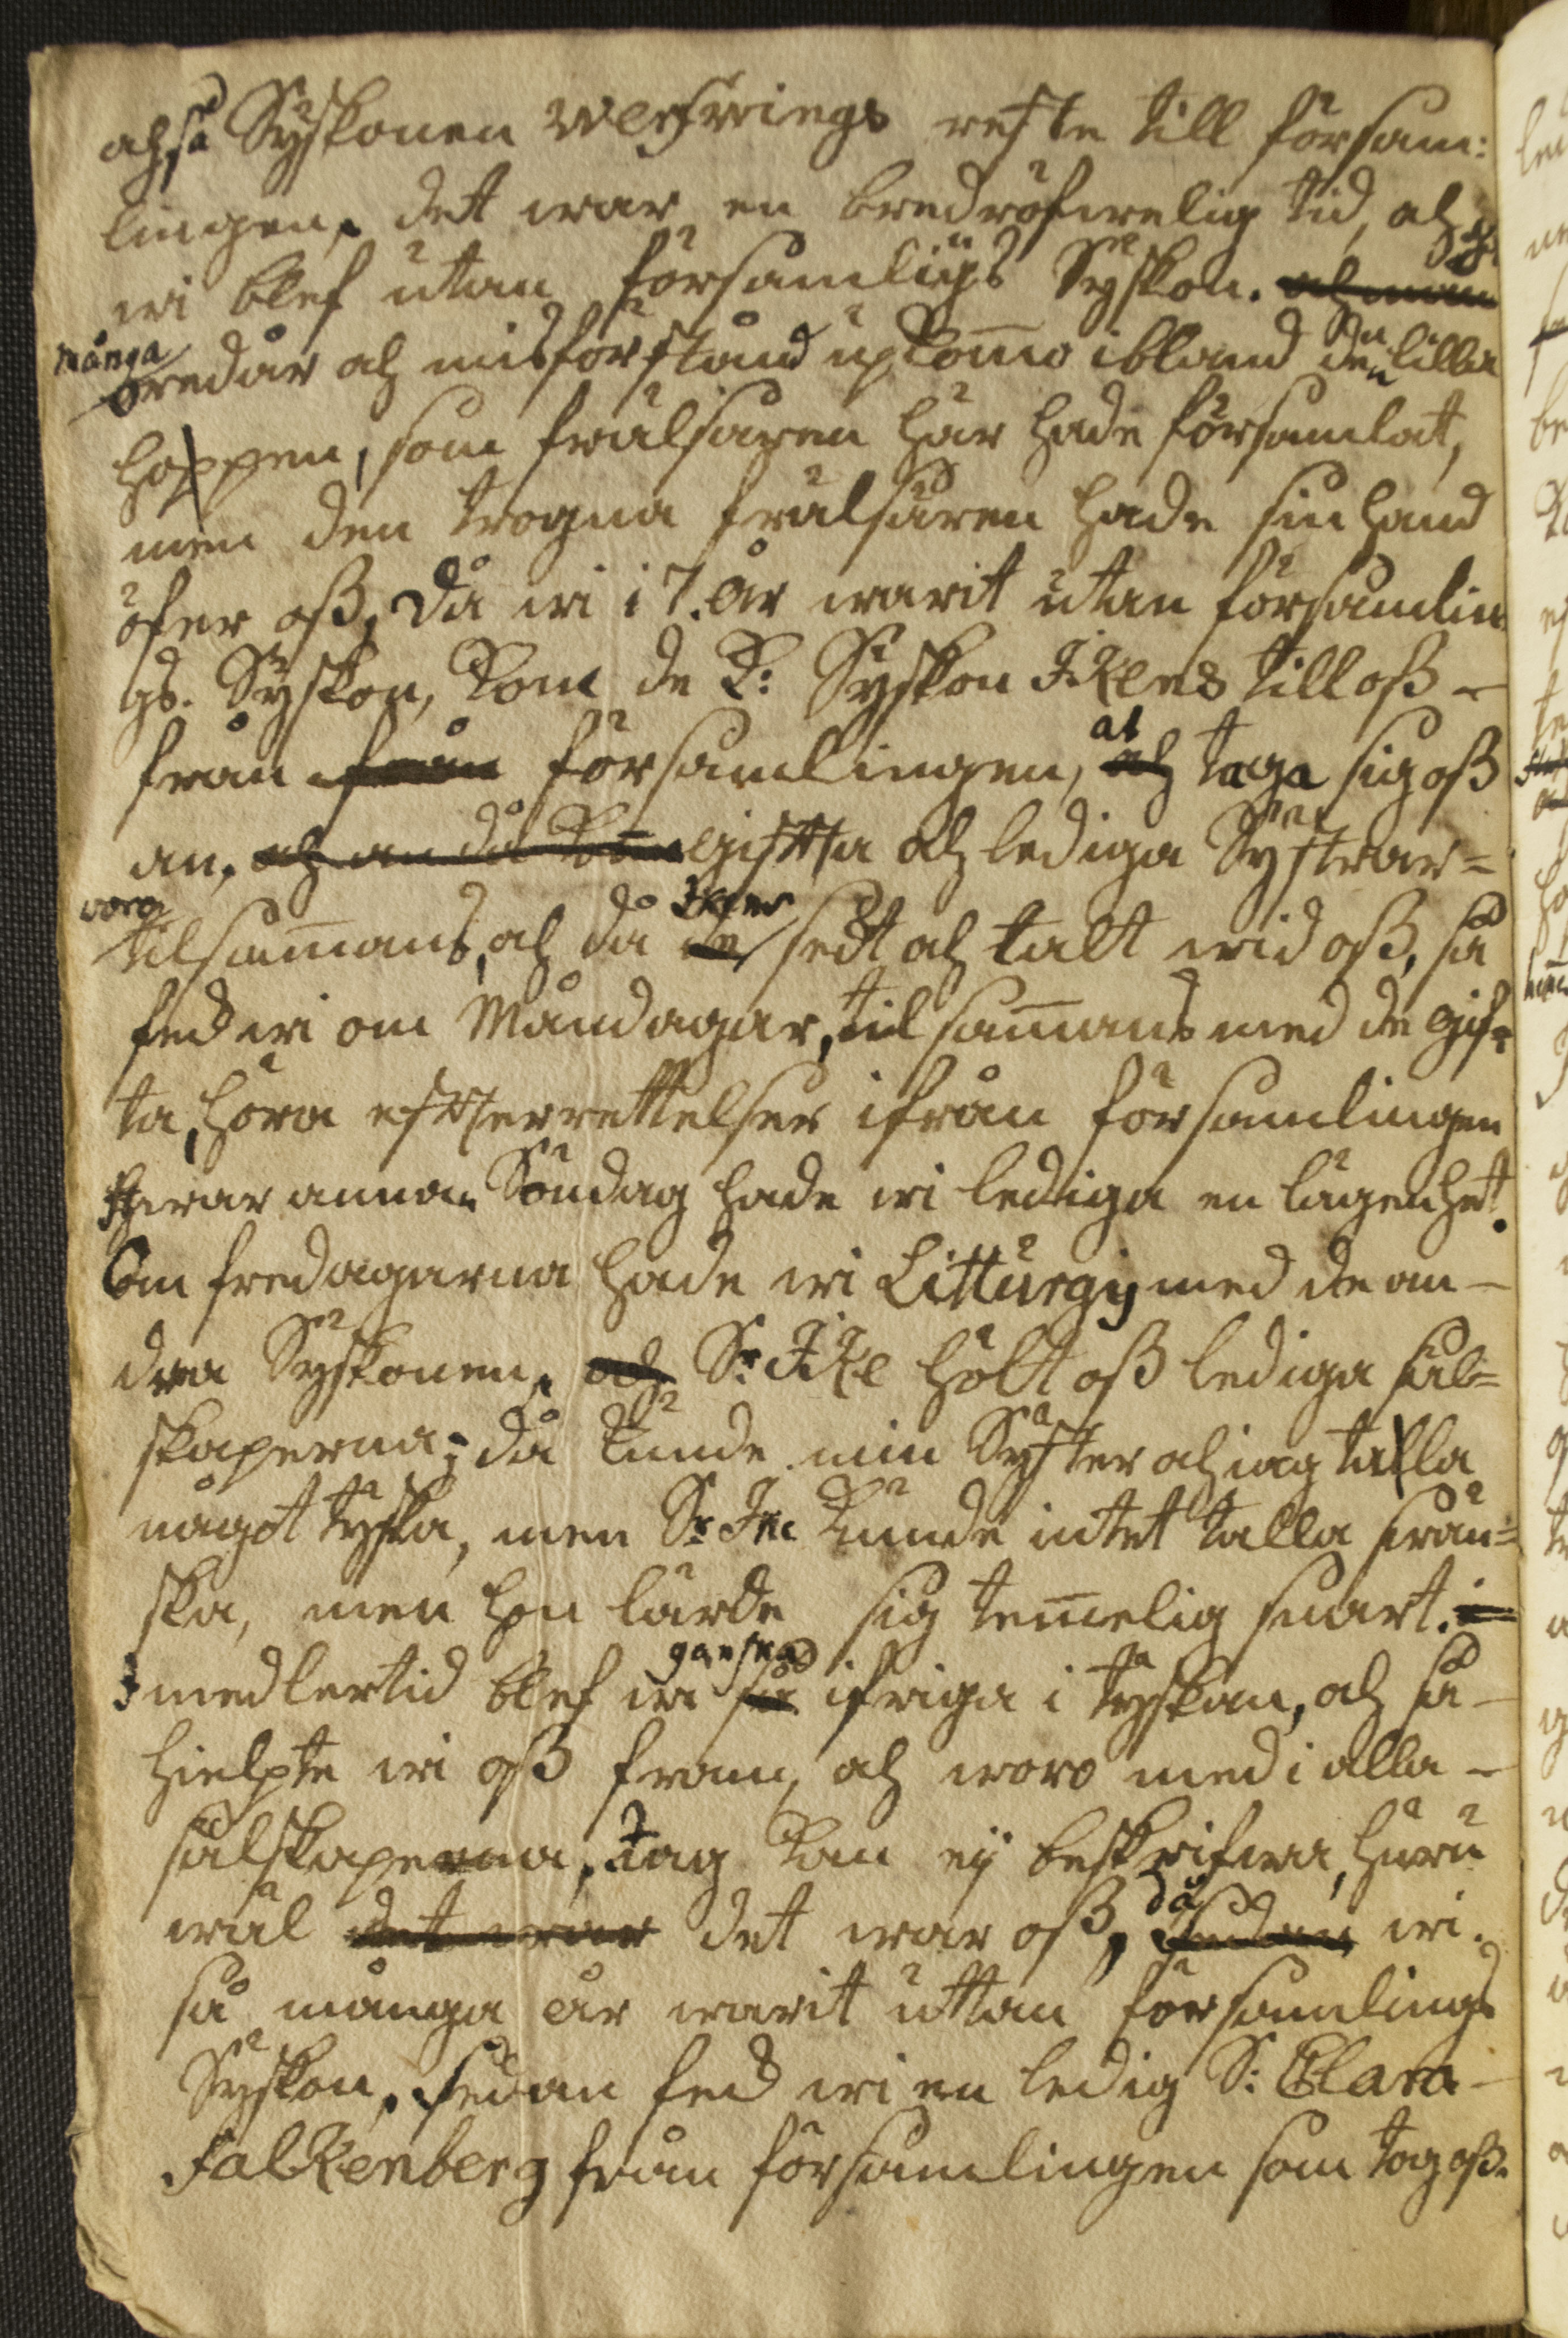 och så Syskonen Wefwrings reste till försam:
lingen, det war en bedröfwelig tid, och
wi blef utan församligs Syskon. och många
många
oredor och misförstånd upkommo ibland den lilla
hoppen, som frälsaren här hade församlat,
men den trogna frälsaren hade sin hand
öfer oss, Då wi i 7. År warit utan församlin
gs. Syskon, kom de K: Syskon Ikens till oss –
från från församlingen, at och taga sig oss
an. och an då giftta och lediga Systrar=
woro
tilsammans, och då de Ikens sedt och talt wid oss, så
feck wi om Måndagar, tilsammans med de gif=
ta, höra eftterrettelser ifrån församlingen
hwar annan Söndag hade wi lediga en lägenhet.
Om fredagarna hade wi Litturgij med de an–
dra Syskonen, och Sr. Ike hölt oss lediga säl=
skaperna; då kunde min Syster och iag talla
något tyska, men Sr. Ike kunde intet talla swän=
ska, men hon lärde sig temmelig snart. i
Imedlertid blef wi så ganska ifriga i tyskan, och så –
hielpte wi oss fram, och woro med i alla –
sälskaperna, Jag kan ej beskrifwa, huru
wäl det war det war oss, då sedan wi
så många år warit uttan församlings
Syskon, sedan feck wi en ledig S: Clara –
Falkenberg från församlingen som tog oss.